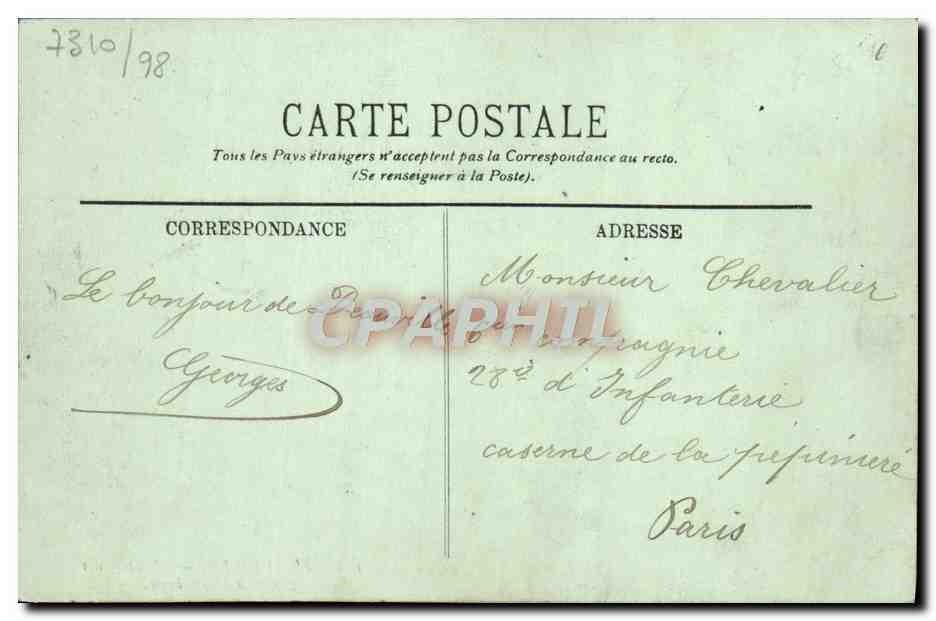 7310/98
CARTE POSTALE
Tous les Pays étrangers n'acceptent pas la Correspondance au recto.
(Se renseigner à la Poste).
CORRESPONDANCE
Le bonjour de
Georges
ADRESSE
Monsieur Chevalier
compagnie
28e d'Infanterie
caserne de la pépinière
Paris
CPAPHIL